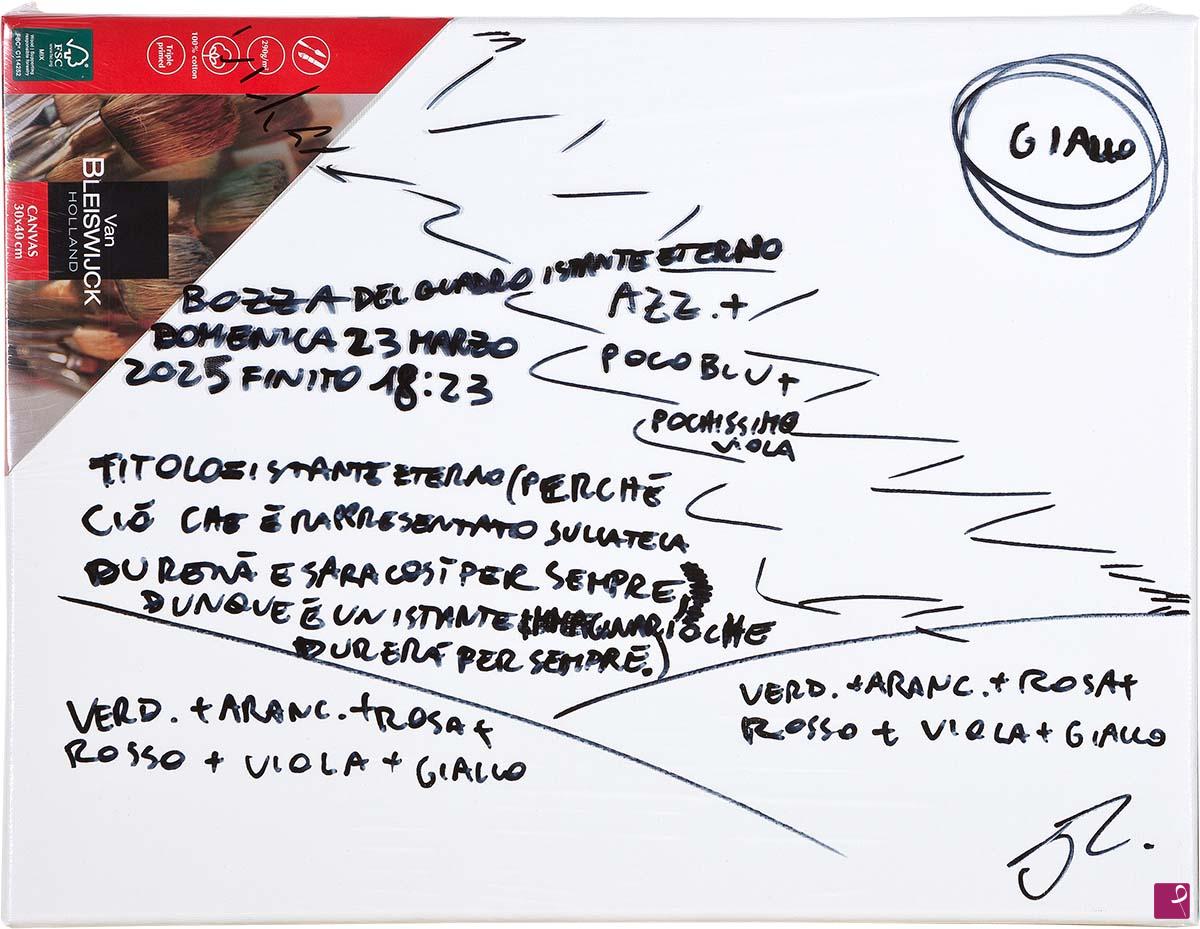 FSC
www.fsc.org
MIX
Wood | Supporting
responsible forestry
FSC® C114292
Triple
primed
100% cotton
290g/m²
Van
BLEISWIJCK
HOLLAND
CANVAS
30x40cm
GIALLO
BOZZA DEL QUADRO ISTANTE ETERNO
DOMENICA 23 MARZO
2025 FINITO 18:23
AZZ. +
POCO BLU +
POCHISSIMO
VIOLA
TITOLO=ISTANTE ETERNO (PERCHÉ
CIÒ CHE È RAPPRESENTATO SULLA TELA
DURERÀ E SARA COSÌ PER SEMPRE
DUNQUE È UN ISTANTE IMMAGINARIO CHE
DURERÀ PER SEMPRE.)
VERD. + ARANC. + ROSA +
ROSSO + VIOLA + GIALLO
VERD. + ARANC. + ROSA +
ROSSO + VIOLA + GIALLO